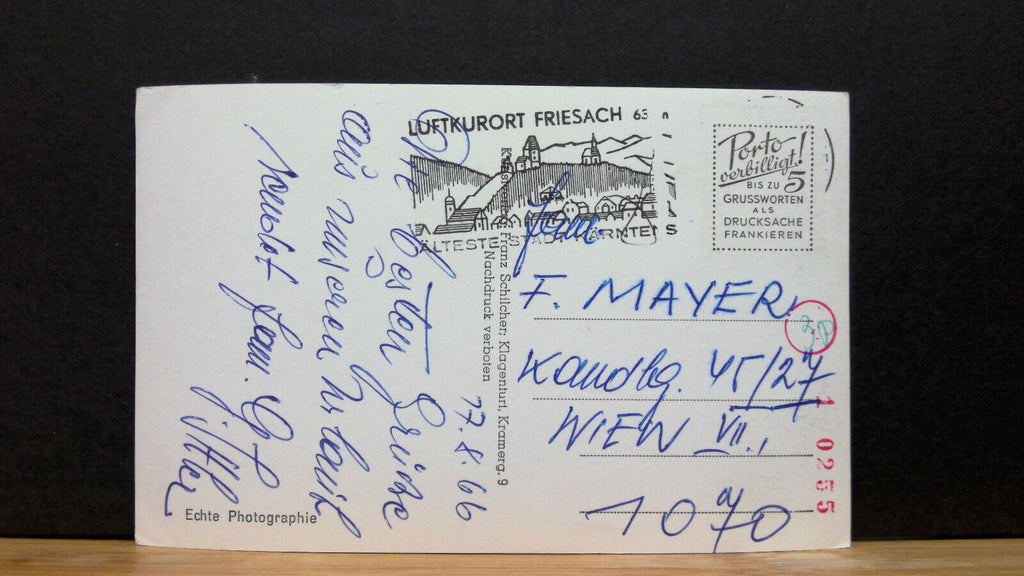 LUFTKURORT FRIESACH 63
ÄLTESTE STADT KÄRNTENS
Porto
verbilligt!
BIS ZU 5
GRUSSWORTEN
ALS
DRUCKSACHE
FRANKIEREN
17.8.66
Die besten Grüße
aus unseren Urlaub
sendet Fam.
Franz Schilcher, Klagenfurt, Kramerg. 9
Nachdruck verboten
Fam.
F. MAYER
Kandlg. 45/27
WIEN VII.,
1070
1 0255
Echte Photographie